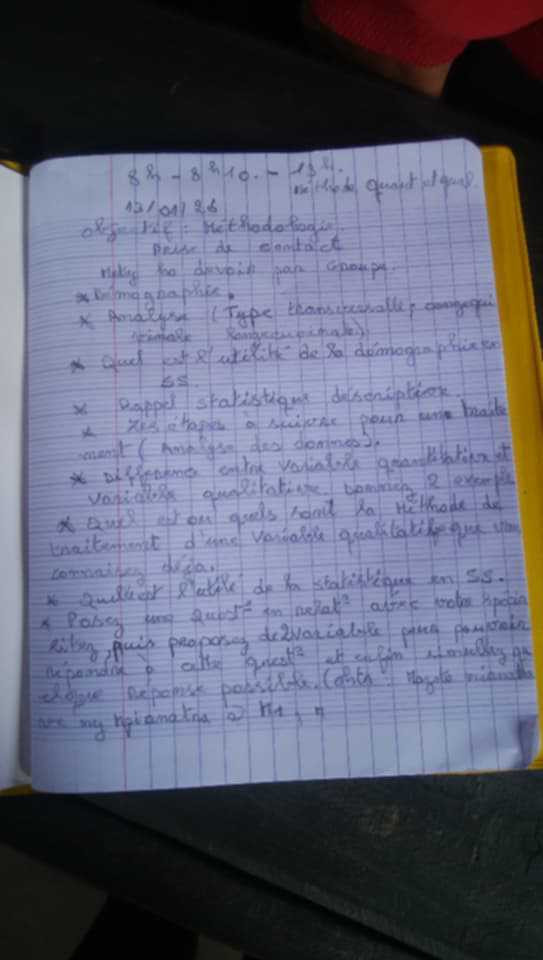 8h - 8h10. - 13h.
Méthode quant et qual.
13/01/26
Objectif : Méthodologie.
Prise de contact
Misy ho devoir par Groupe.
* Démographie.
* Analyse (Type transversalle,
* Quel est l'utilité de la démographie en
SS.
* Rappel statistique déscriptive.
* Les étapes a suivre pour une traite
ment (Analyse des donnes).
* Différence entre variable quantitative et
variable qualitative. Donnez 2 exemple
* Quel est ou quels sont la Méthode de
traitement d'une variable qualitative que vous
connaissez déja.
* Quelle est l'utilé de la statistique en SS.
* Posez une Quest° en relat° avec votre spécia
litez, puis proposez de 2 variable pour pouvoir
répondre à cette quest° et enfin
chaque reponse possible.